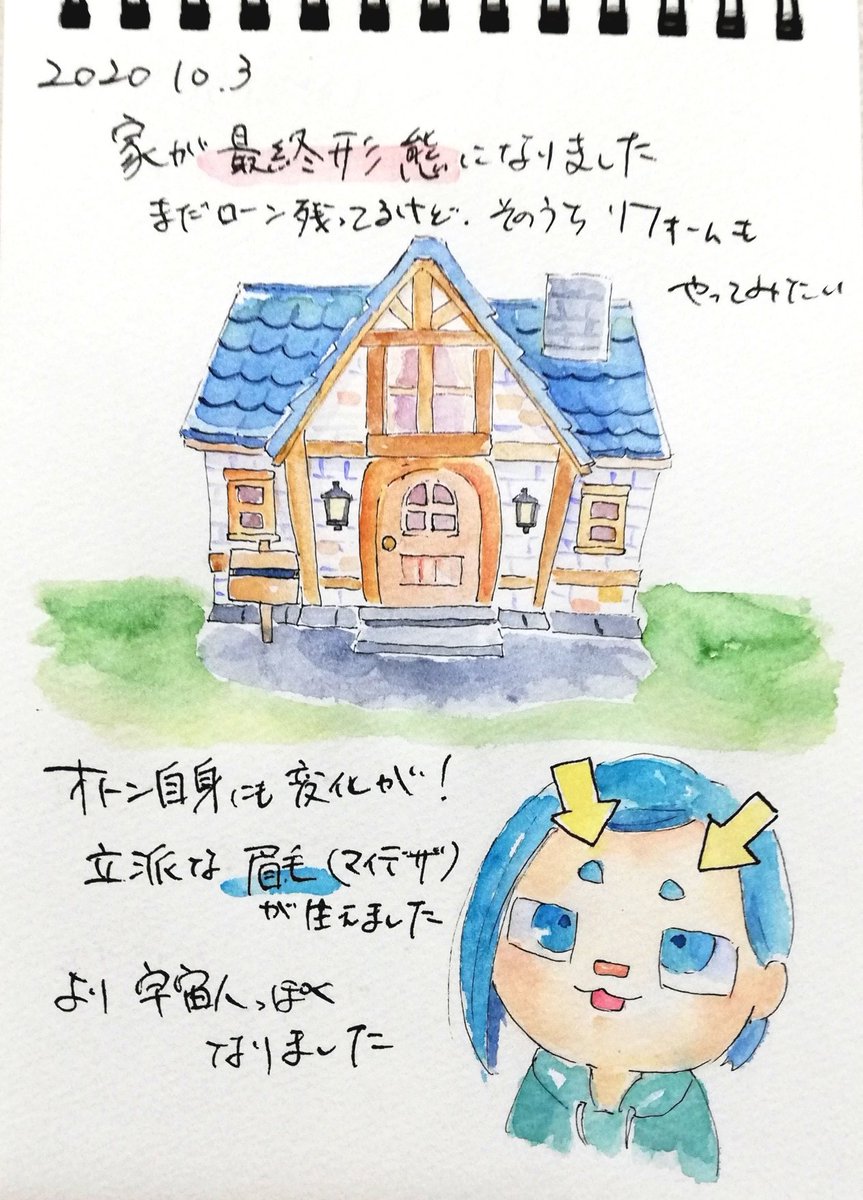 2020 10.3
家が最終形態になりました
まだローン残ってるけど、そのうちリフォームも
やってみたい
オトン自身にも変化が!
立派な眉毛(マイデザ)
が生えました
より宇宙人っぽく
なりました